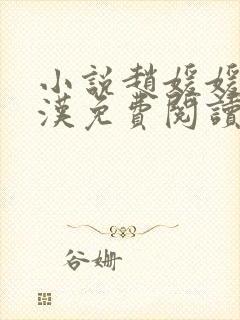 小說趙媛媛
漢免費閱讀
谷姍